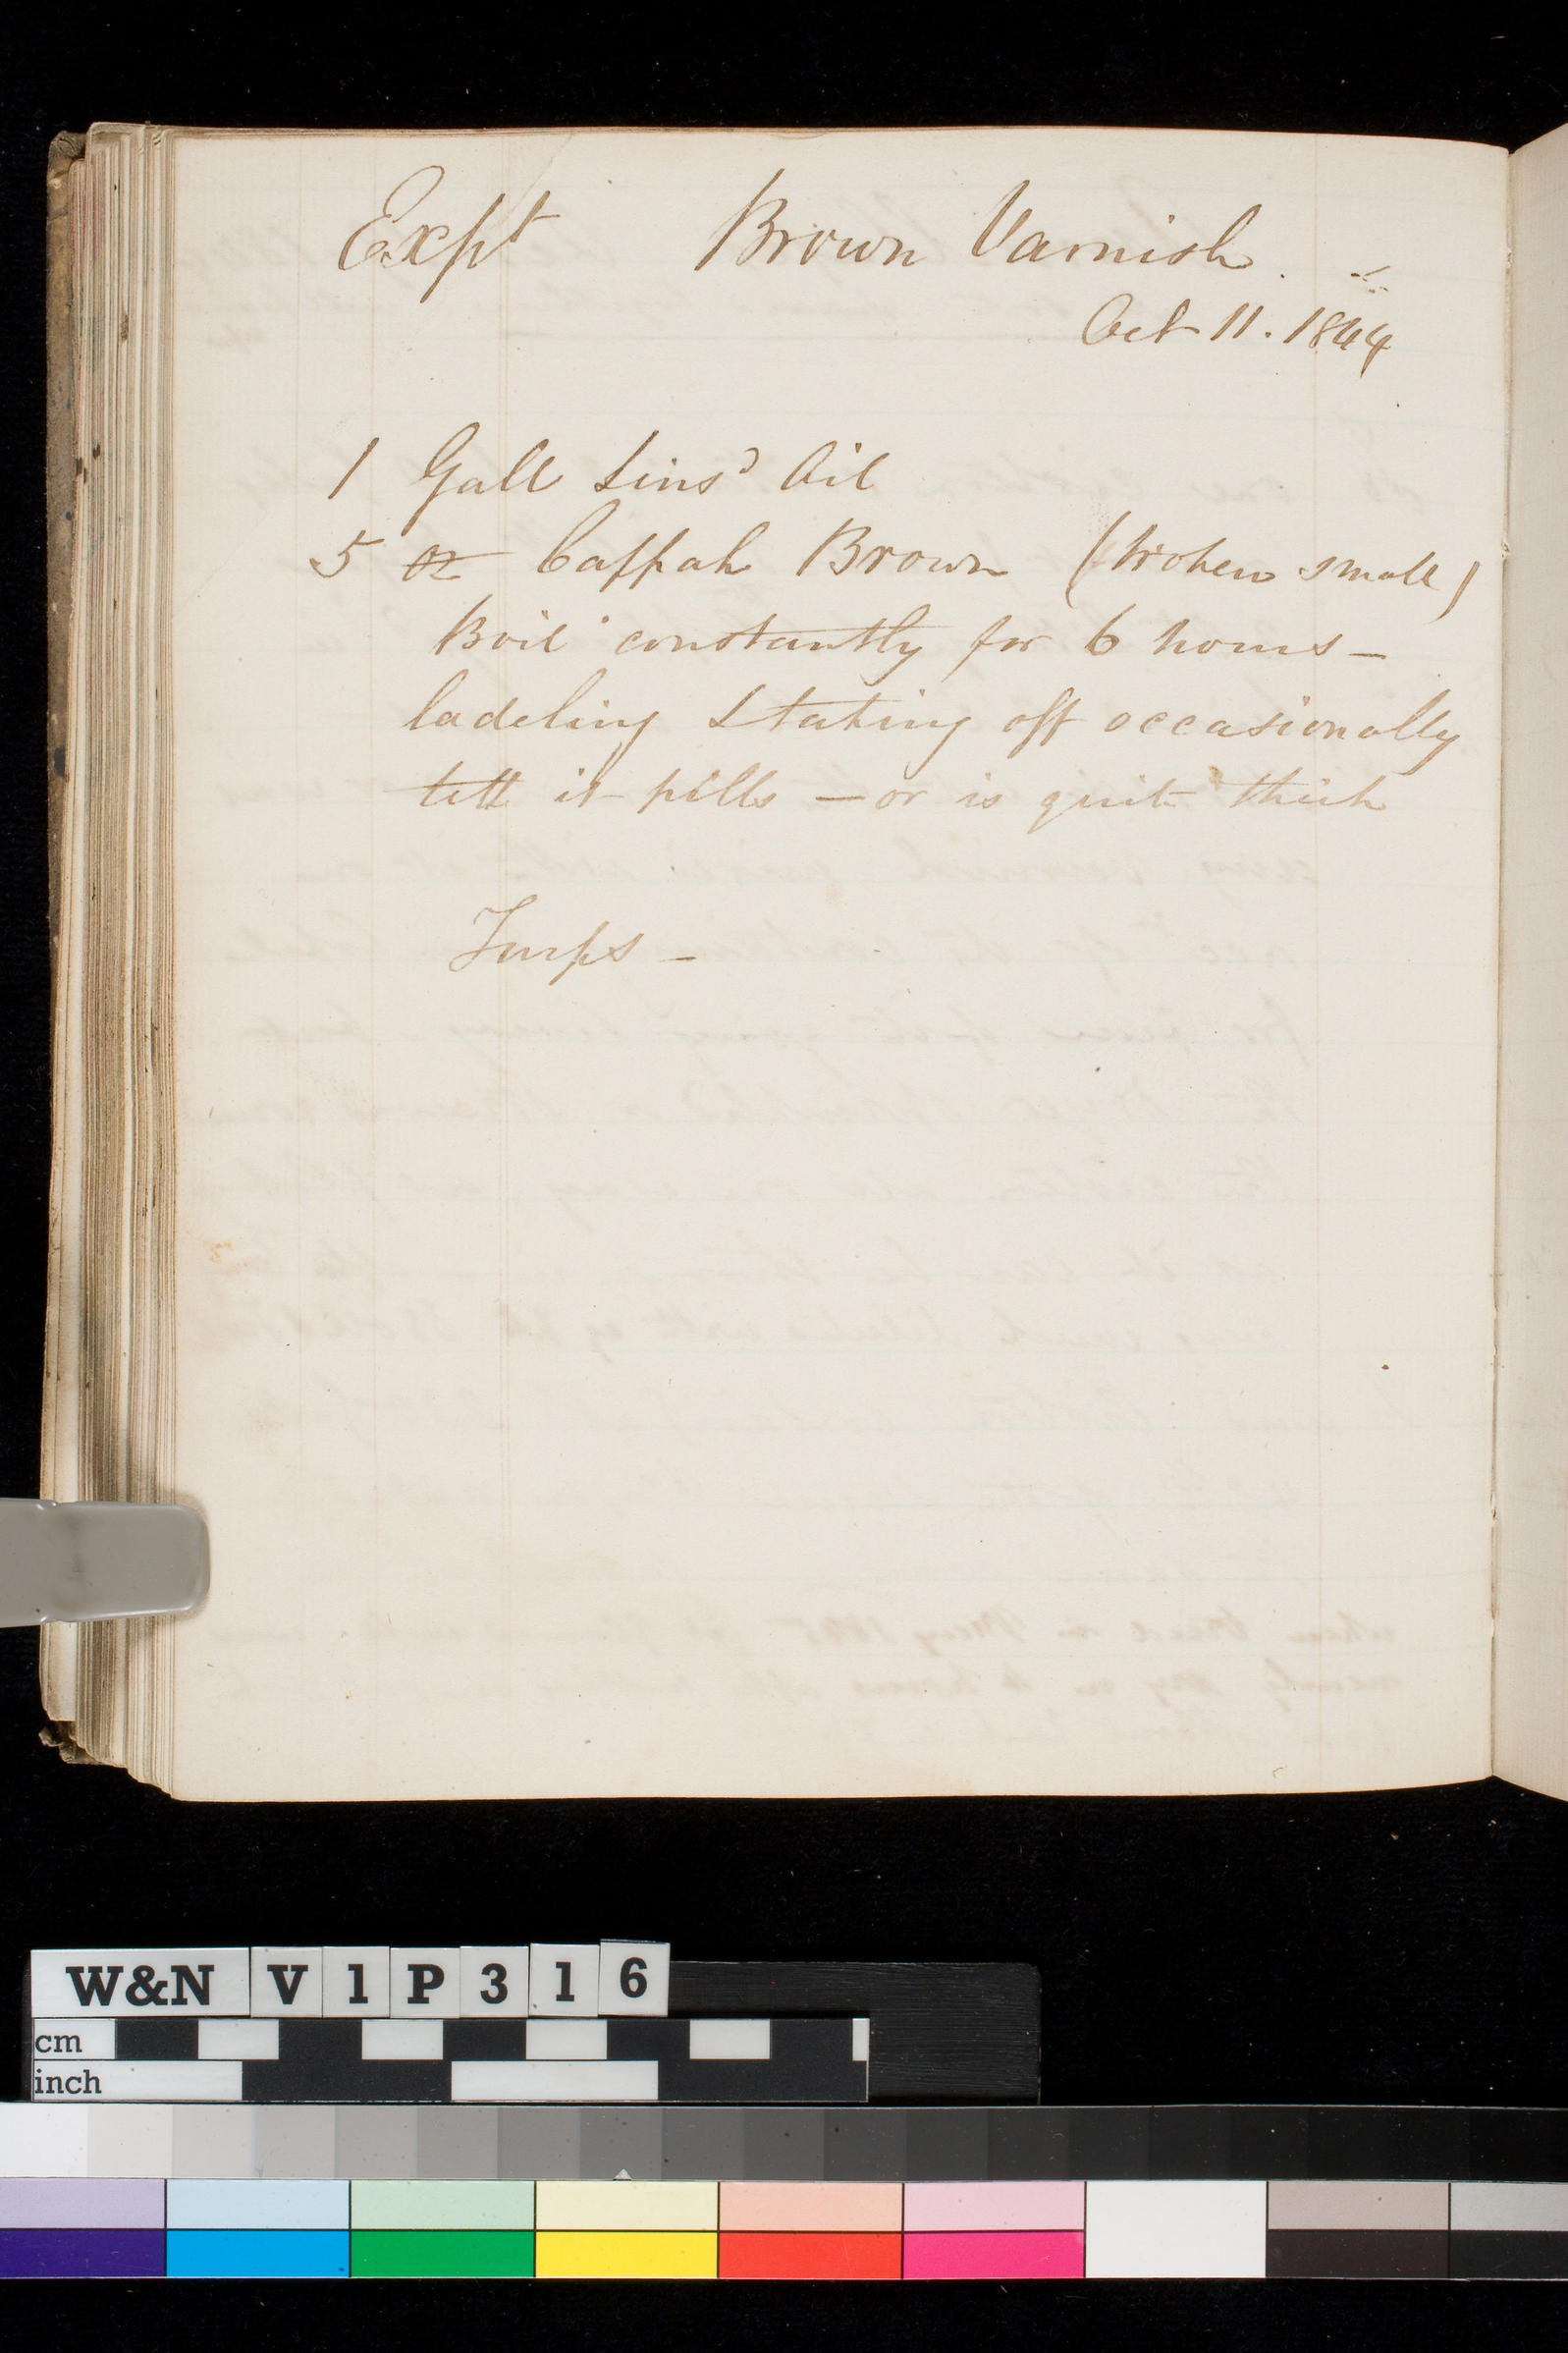 Expt Brown Varnish.
Oct 11. 1844
1 Gall Linsd Oil
5 oz Cappah Brown (broken small)
Boil constantly for 6 hours —
ladeling & taking off occasionally
till it pills — or is quite thick
Turps —
W&N V1P316
cm
inch